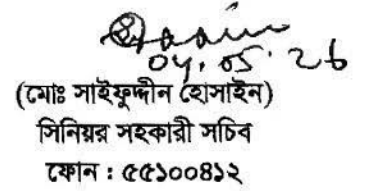 04.05.26
(মোঃ সাইফুদ্দীন হোসাইন)
সিনিয়র সহকারী সচিব
ফোন : ৫৫১০০৪১২